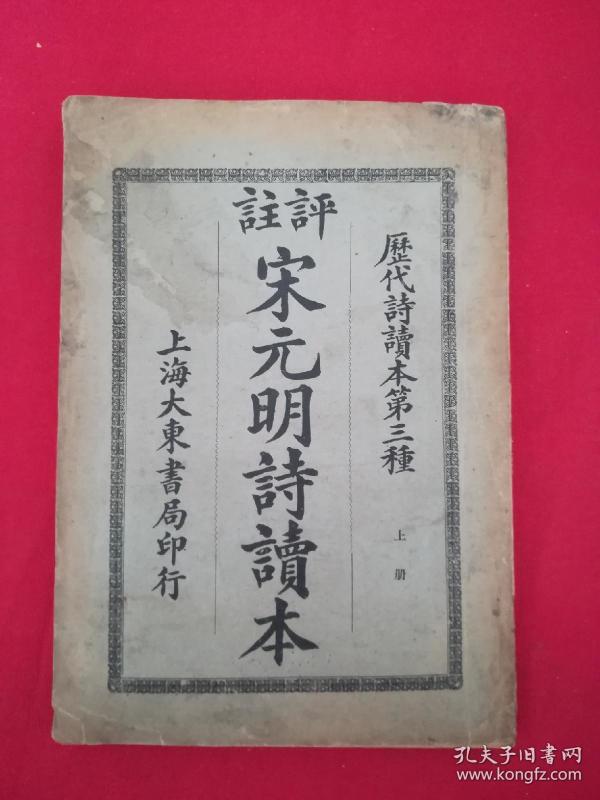 歷代詩讀本第三種
上册
評註
宋元明詩讀本
上海大東書局印行
孔夫子旧書网
www.kongfz.com